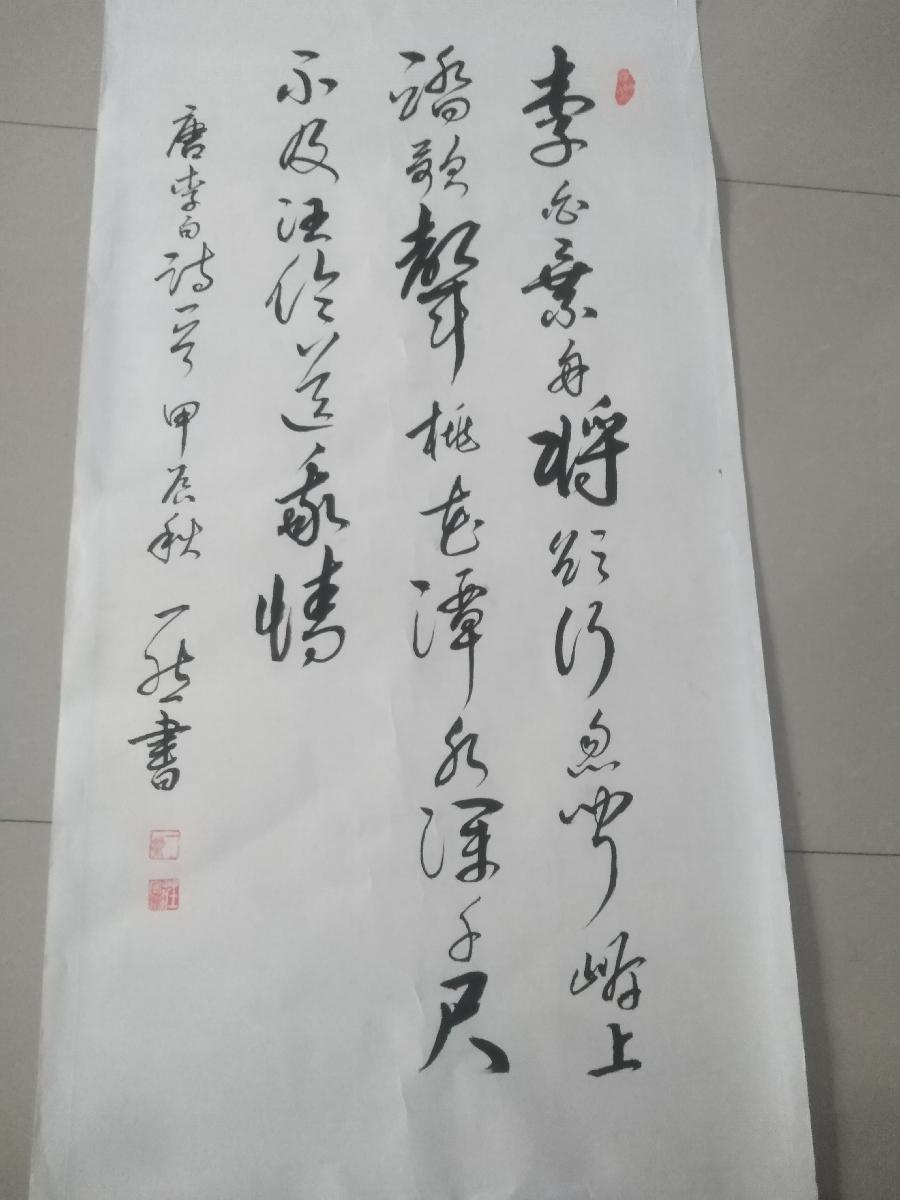 李白乘舟將欲行忽聞岸上
踏歌聲桃花潭水深千尺
不及汪倫送我情
唐李白詩一首 甲辰秋 一然書